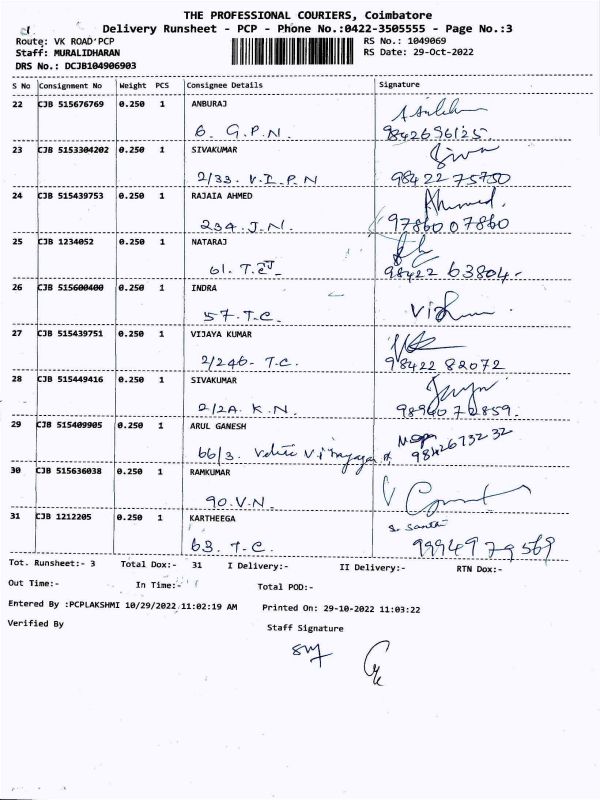 THE PROFESSIONAL COURIERS, Coimbatore
Delivery Runsheet - PCP - Phone No.:0422-3505555 - Page No.:3
Route: VK ROAD PCP
RS No.: 1049069
Staff: MURALIDHARAN
RS Date: 29-Oct-2022
DRS No.: DCJB104906903
S No Consignment No Weight PCS Consignee Details Signature
22 CJB 515676769 0.250 1 ANBURAJ
6. G.P.N. 9842696125
23 CJB 5153304202 0.250 1 SIVAKUMAR Siva
2/33. V.I.P.N 98422 75750
24 CJB 515439753 0.250 1 RAJAIA AHMED Ahmed.
234. J.N. 97860 07860
25 CJB 1234052 0.250 1 NATARAJ
61. T.C 98422 63804.
26 CJB 515600400 0.250 1 INDRA
57. T.C.
27 CJB 515439751 0.250 1 VIJAYA KUMAR
2/246- T.C. 98422 82072
28 CJB 515449416 0.250 1 SIVAKUMAR
2/2A. K.N. 98940 72859.
29 CJB 515409905 0.250 1 ARUL GANESH
66/3. 98426732 32
30 CJB 515636038 0.250 1 RAMKUMAR
90. V.N.
31 CJB 1212205 0.250 1 KARTHEEGA S. Santhi
63. T.C. 99949 79569
Tot. Runsheet:- 3 Total Dox:- 31 I Delivery:- II Delivery:- RTN Dox:-
Out Time:- In Time:- Total POD:-
Entered By :PCPLAKSHMI 10/29/2022 11:02:19 AM Printed On: 29-10-2022 11:03:22
Verified By Staff Signature